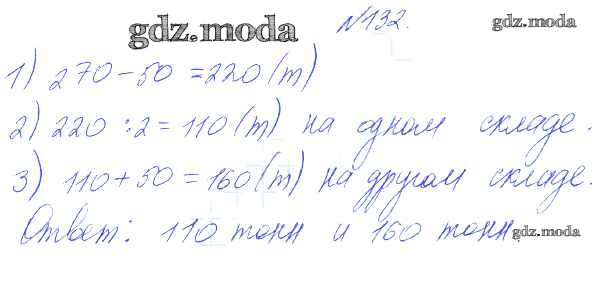 gdz.moda №132. gdz.moda
1) 270-50=220(т)
2) 220:2=110(т) на одном складе.
3) 110+50=160(т) на другом складе.
Ответ: 110 тонн и 160 тонн. gdz.moda